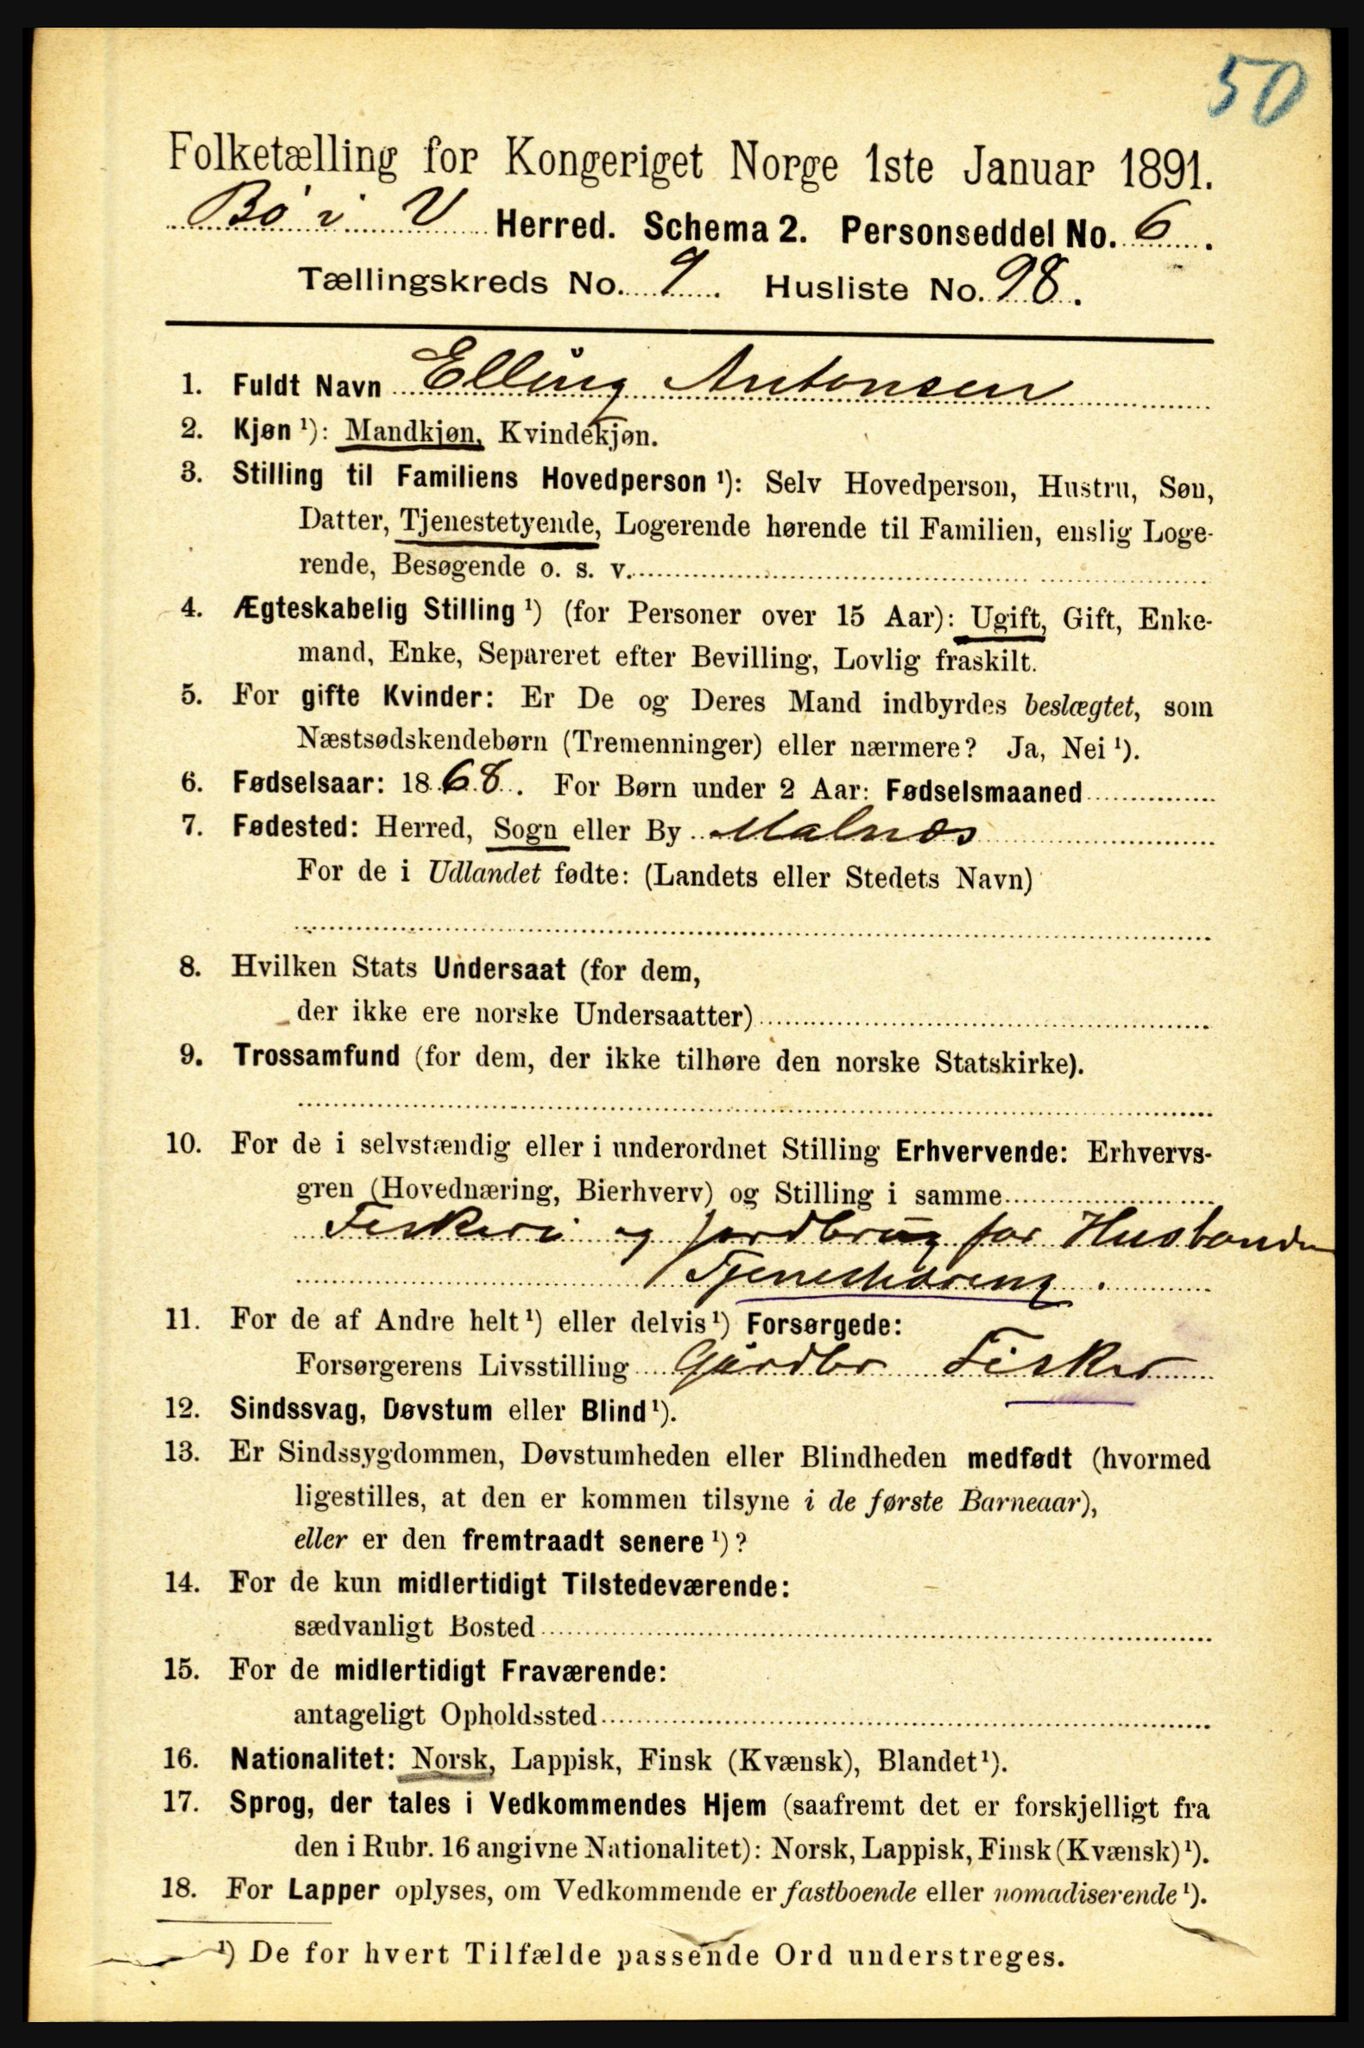 50
Folketælling for Kongeriget Norge 1ste Januar 1891.
Bø i V Herred. Schema 2. Personseddel No. 6.
Tællingskreds No. 9. Husliste No. 98.
1. Fuldt Navn Elling Antonsen
2. Kjøn ¹): Mandkjøn, Kvindekjøn.
3. Stilling til Familiens Hovedperson ¹): Selv Hovedperson, Hustru, Søn,
Datter, Tjenestetyende, Logerende hørende til Familien, enslig Loge-
rende, Besøgende o. s. v.
4. Ægteskabelig Stilling ¹) (for Personer over 15 Aar): Ugift, Gift, Enke-
mand, Enke, Separeret efter Bevilling, Lovlig fraskilt.
5. For gifte Kvinder: Er De og Deres Mand indbyrdes beslægtet, som
Næstsødskendebørn (Tremenninger) eller nærmere? Ja, Nei ¹).
6. Fødselsaar: 1868. For Børn under 2 Aar: Fødselsmaaned
7. Fødested: Herred, Sogn eller By Malnæs
For de i Udlandet fødte: (Landets eller Stedets Navn)
8. Hvilken Stats Undersaat (for dem,
der ikke ere norske Undersaatter)
9. Trossamfund (for dem, der ikke tilhøre den norske Statskirke).
10. For de i selvstændig eller i underordnet Stilling Erhvervende: Erhvervs-
gren (Hovednæring, Bierhverv) og Stilling i samme
Fiskeri og jordbrug for Husbonden
11. For de af Andre helt ¹) eller delvis ¹) Forsørgede:
Forsørgerens Livsstilling Gårdbr Fisker
12. Sindssvag, Døvstum eller Blind ¹).
13. Er Sindssygdommen, Døvstumheden eller Blindheden medfødt (hvormed
ligestilles, at den er kommen tilsyne i de første Barneaar),
eller er den fremtraadt senere ¹)?
14. For de kun midlertidigt Tilstedeværende:
sædvanligt Bosted
15. For de midlertidigt Fraværende:
antageligt Opholdssted
16. Nationalitet: Norsk, Lappisk, Finsk (Kvænsk), Blandet ¹).
17. Sprog, der tales i Vedkommendes Hjem (saafremt det er forskjelligt fra
den i Rubr. 16 angivne Nationalitet): Norsk, Lappisk, Finsk (Kvænsk) ¹).
18. For Lapper oplyses, om Vedkommende er fastboende eller nomadiserende ¹).
¹) De for hvert Tilfælde passende Ord understreges.